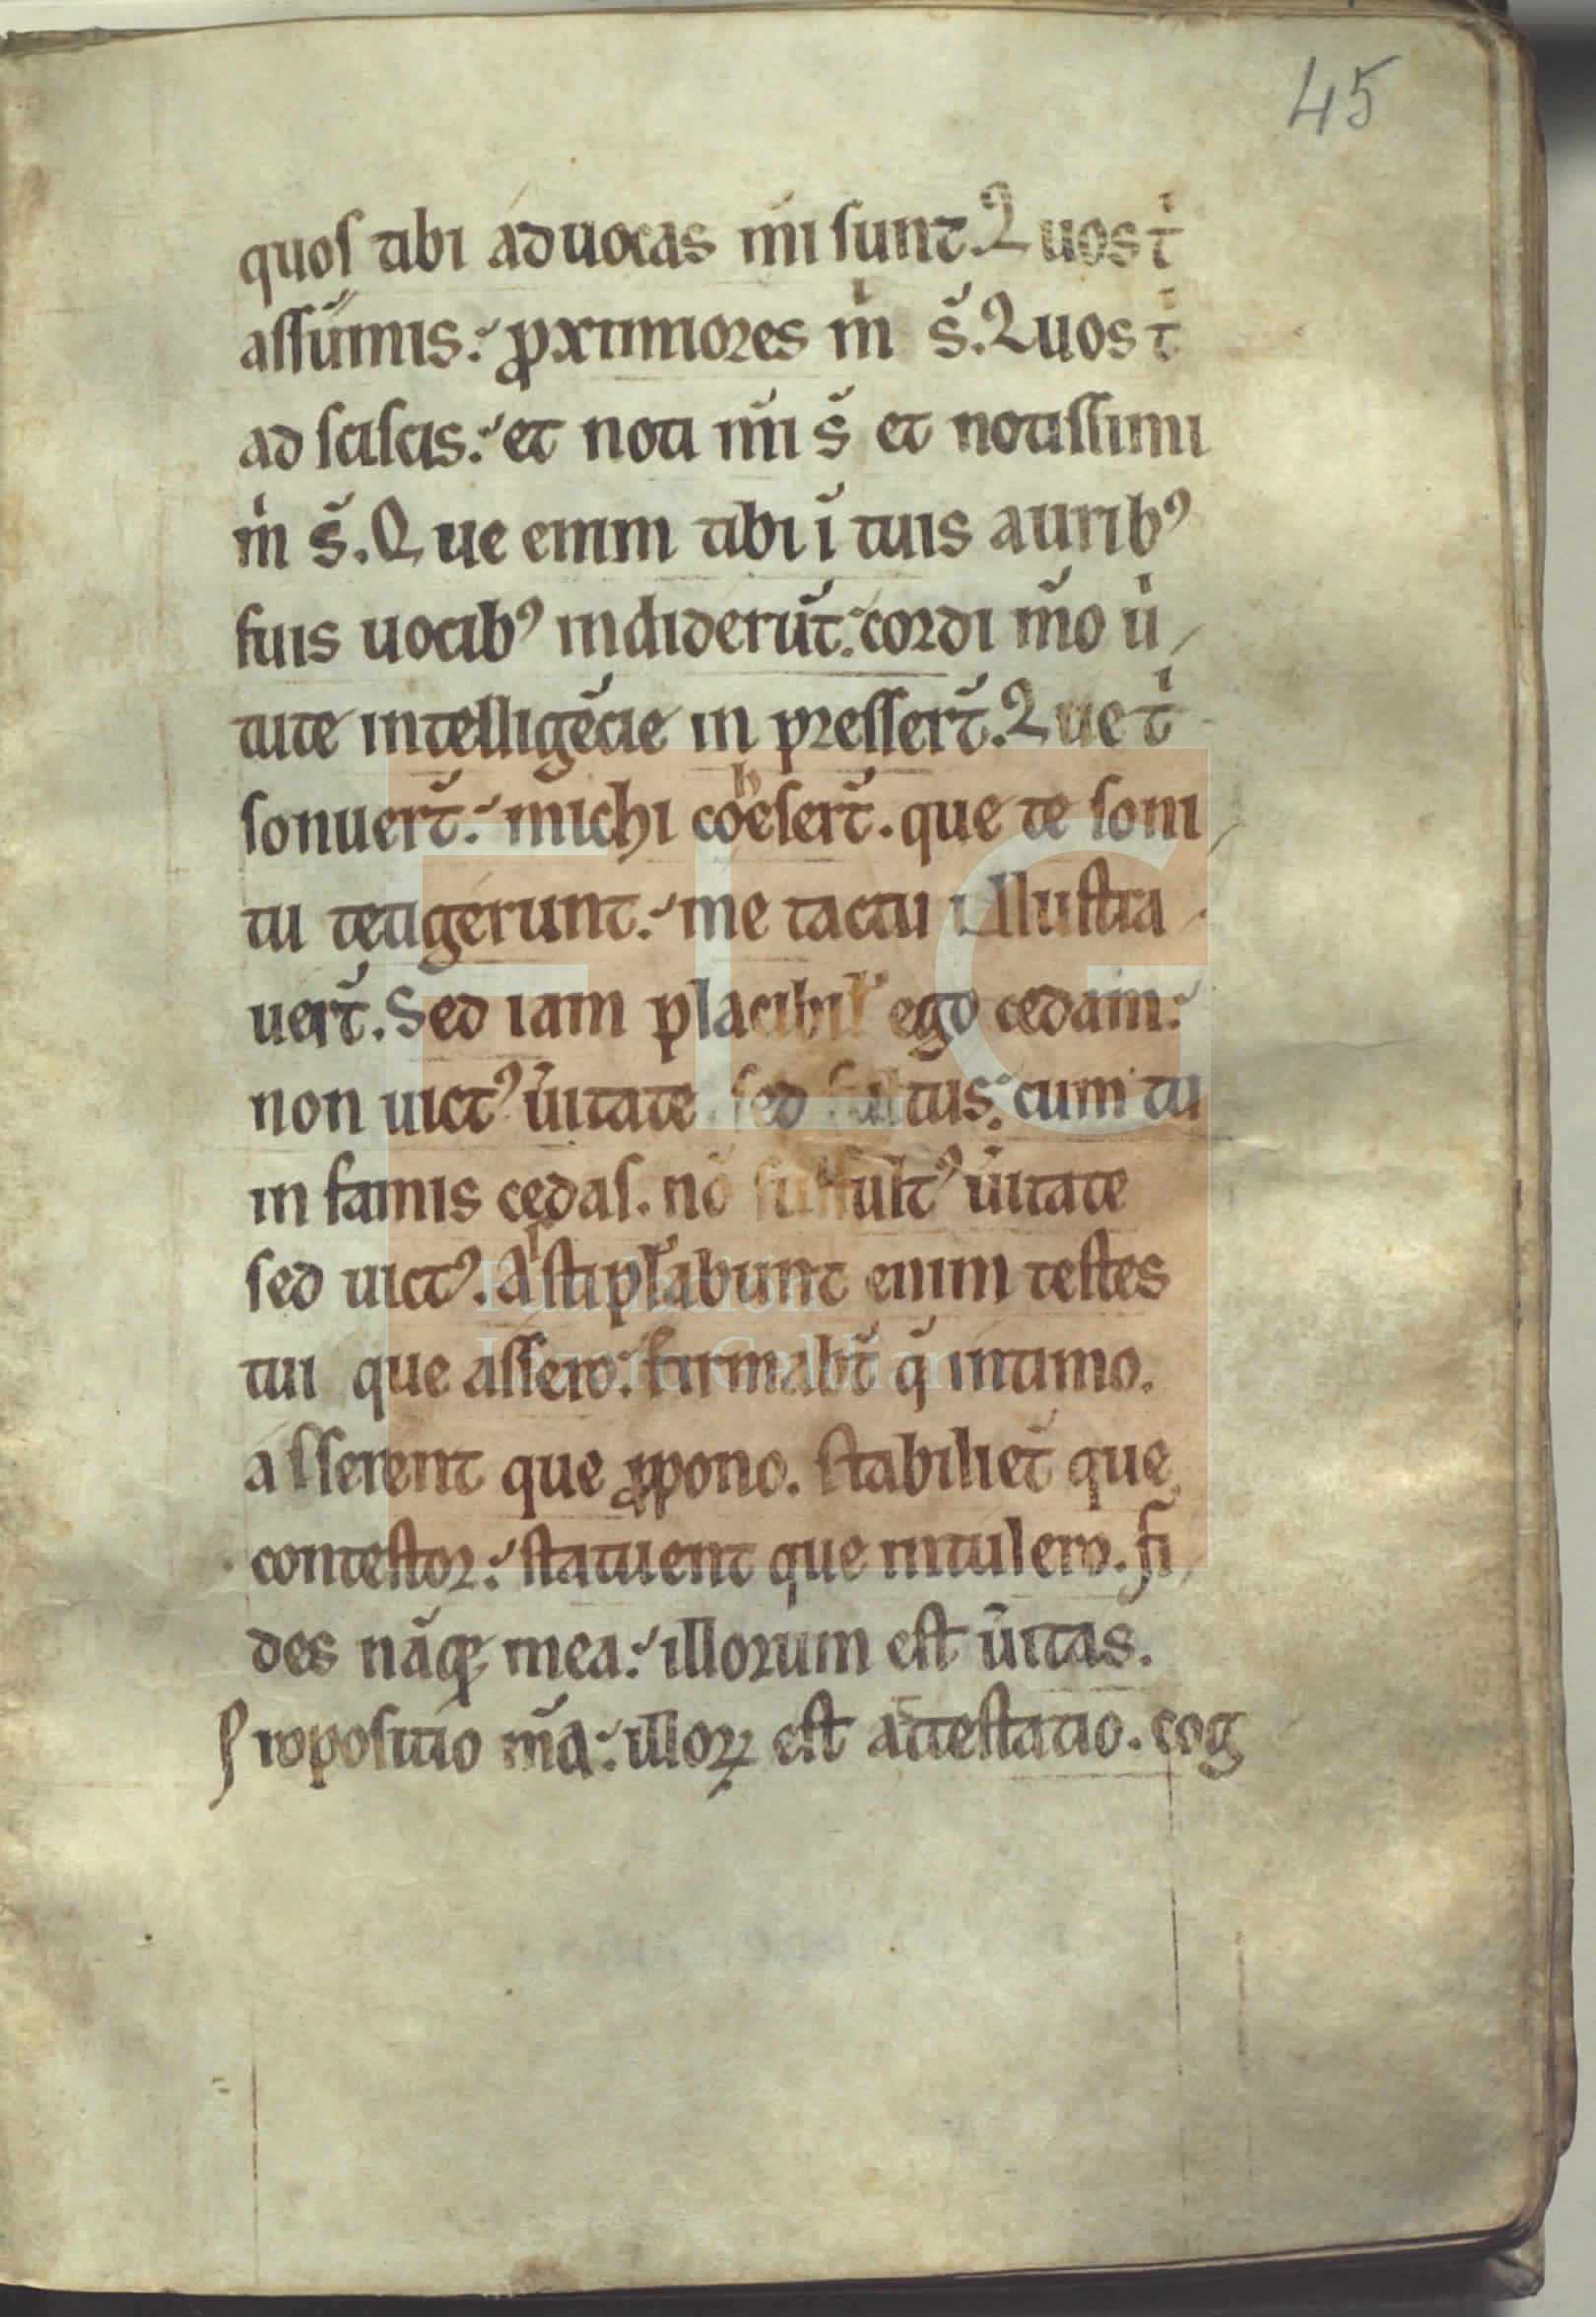 45
quos tibi aduocas m̃i sunt. Quos tⁱ
assũmis: ꝓxtimiores mⁱ s̃. Quos tⁱ
ad sciscis: et noti m̃i s̃ et notissimi
mⁱ s̃. Que enim tibi ĩ tuis auribꝰ
suis uocibꝰ indiderũt: cordi m̃o uⁱ
tute intelligẽcie in pressert̃. Que tⁱ
sonuert̃: michi coheſert̃. que te soni
tu tetigerunt: me tactu illustra
uert̃. Sed iam placibil' ego cedam:
non uictꝰ ũitate sed tus: cum tu
infamis cedas. nõ suffultꝰ ũitate
sed uictꝰ. Astipl̃abunt enim testes
tui que assero: firmabt̃ q̃ intimo.
asserent que ꝓpono. stabiliet̃ que
contestor: statuent que intulero. fi
des nãqꝫ mea: illorum est ũitas.
Propositio m̃a: illoꝝ est attestatio. cog
FLG
Fundación